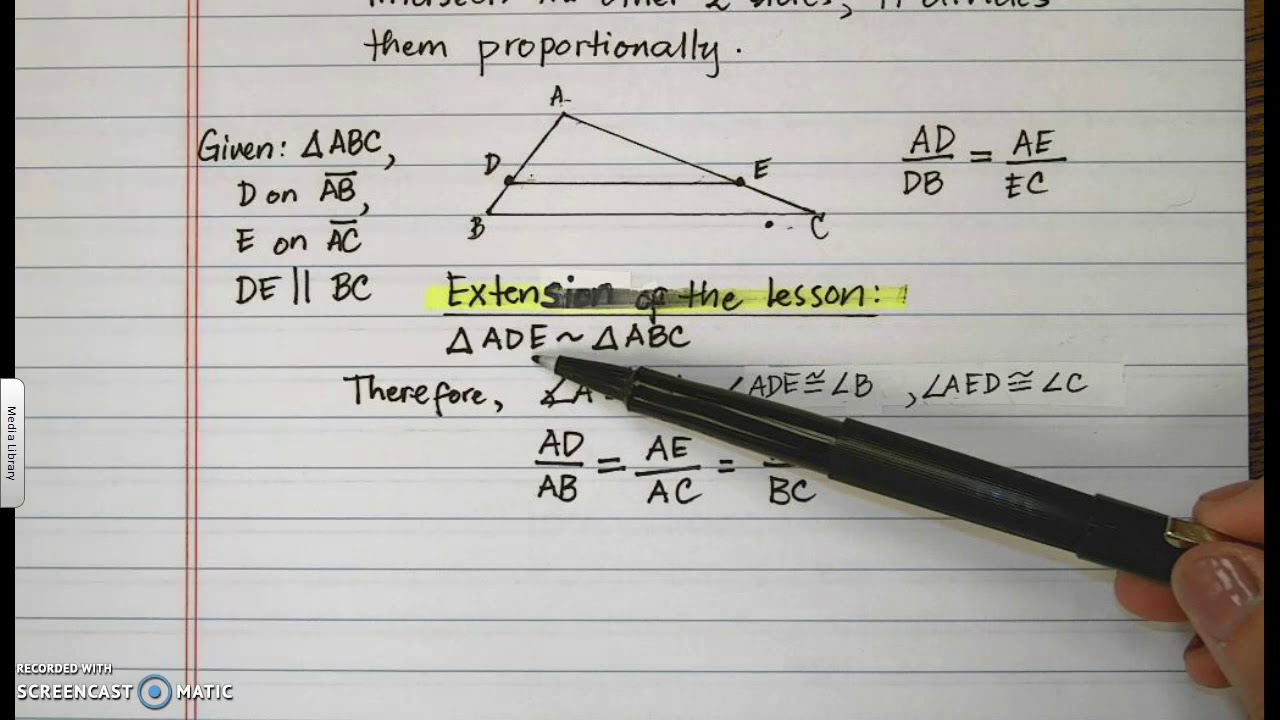 them proportionally.
A
Given: △ABC,
D on AB,
E on AC
DE || BC
D
E
B
C
AD/DB = AE/EC
Extension of the lesson:
△ADE ~ △ABC
Therefore, ∠A ∠ADE ≅ ∠B , ∠AED ≅ ∠C
AD/AB = AE/AC = /BC
Media Library
RECORDED WITH
SCREENCAST MATIC